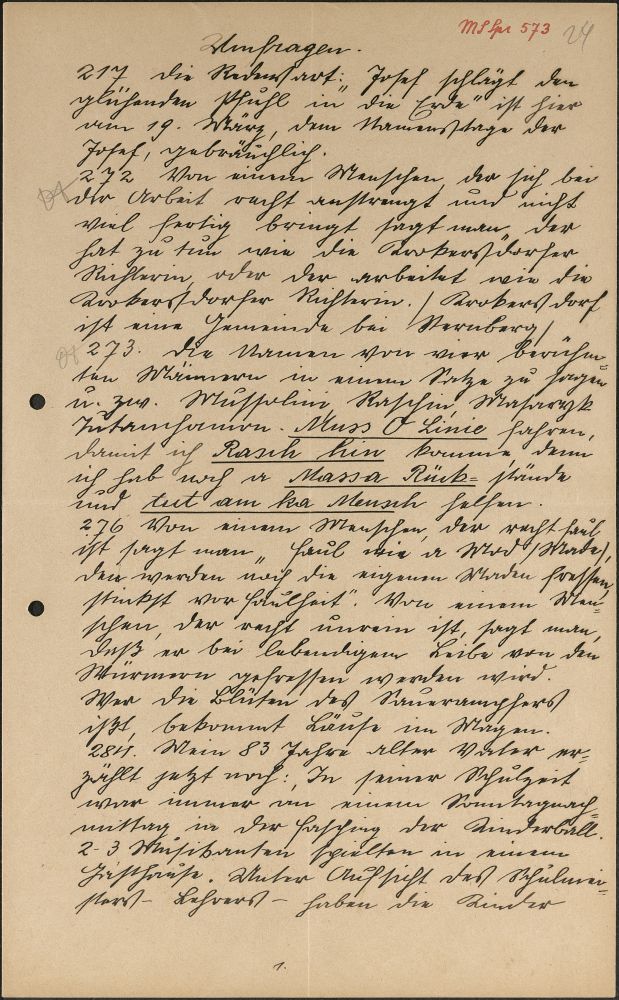 MS Spr 573 24
Umfragen.
217 Die Redensart: "Josef schlägt den
glühenden Pfuhl in die Erde" ist hier
am 19. März, dem Namenstage der
Josef, gebräuchlich.
272 Von einem Menschen, der sich bei
der Arbeit recht anstrengt und nicht
viel fertig bringt sagt man, der
hat zu tun wie die Krokersdorfer
Richterin, oder der arbeitet wie die
Krokersdorfer Richterin. / Krokersdorf
ist eine Gemeinde bei Sternberg /
273. Die Namen von vier berühm-
ten Männern in einem Satze zu sagen
u. zw. Mussolini, Raschin, Masaryk
Tutanchamon. Muss O Linie fahren,
damit ich Rasch hin komme, denn
ich hab noch a Massa Rück= stände
und tut am ka Mensch helfen.
276 Von einem Menschen, der recht faul
ist sagt man "faul wie a Mod /Made/,
den werden noch die eigenen Maden fressen,
stinkst vor Faulheit". Von einem Men-
schen, der recht unrein ist, sagt man,
daß er bei lebendigem Leibe von den
Würmern gefressen werden wird.
Wer die Blüten des Sauerampfers
ißt, bekommt Läuse im Magen.
284. Mein 83 Jahre alter Vater er-
zählt jetzt noch: In seiner Schulzeit
war immer an einem Sonntagnach-
mittag in der Fasching der Kinderball.
2-3 Musikanten spielten in einem
Gasthause. Unter Aufsicht des Schulmei-
sters - Lehrers - haben die Kinder
1.